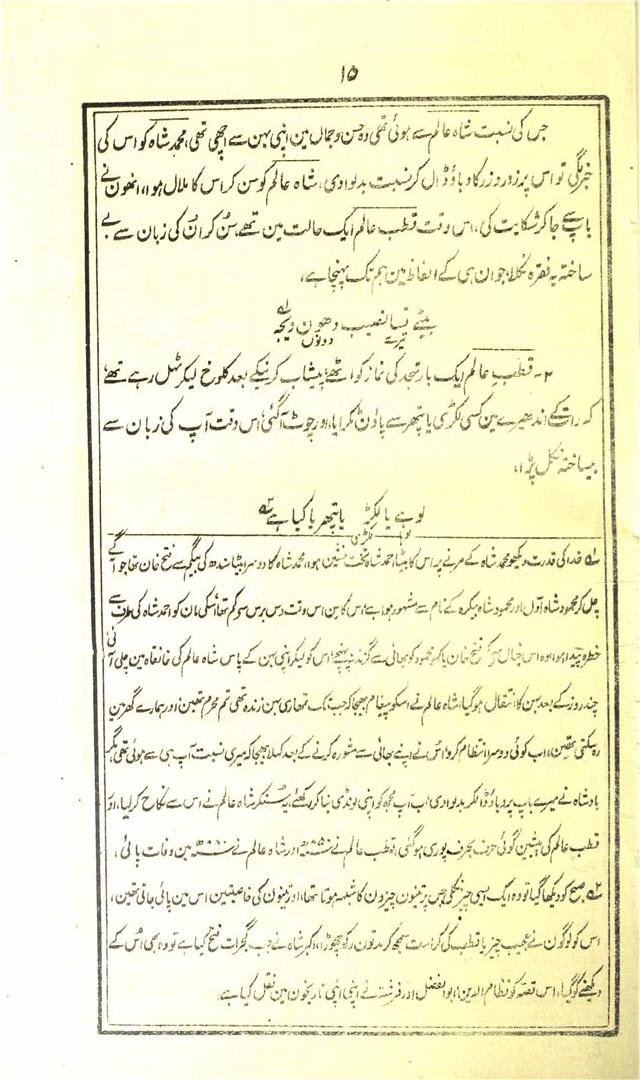 ۱۵
جس کی نسبت شاہ عالم سے ہوئی تھی وہ حسن و جمال مین اپنی بہن سے اچھی تھی، محمد شاہ کو اس کی
خبر لگی تو اس پر زور و زر کا دباؤ ڈال کر نسبت بدلوا دی، شاہ عالم کو سن کر اس کا ملال ہوا، انھون نے
باپ سے جا کر شکایت کی، اس وقت قطب عالم ایک حالت مین تھے، سن کر ان کی زبان سے بے
ساختہ یہ فقرہ نکلا، جو ان ہی کے الفاظ مین ہم تک پہنچا ہے،
بیٹے تسا نصیب دھون ویجہ ۱؎
تیرے دونوں
۲- قطب عالم ایک بار تہجد کی نماز کو اٹھے، پیشاب کرنیکے بعد کلوخ لیکر ٹہل رہے تھے
کہ رات کے اندھیرے مین کسی لکڑی یا پتھر سے پاؤن ٹکرایا، اور چوٹ آگئی، اس وقت آپ کی زبان سے
بیساختہ نکل پڑا،
لوہے یا لکڑ یا پتھر یا کیا ہے ۲؎
لوہا لکڑی
۱؎ خدا کی قدرت دیکھو محمد شاہ کے مرنے پر اس کا بیٹا احمد شاہ تخت نشین ہوا، محمد شاہ کا دوسرا بیٹا سندھ کی بیگم سے فتح خان تھا جو آگے
چل کر محمود شاہ اول اور محمود شاہ بیگرہ کے نام سے مشہور ہوا ہے، اس کا سن اس وقت دس برس سے کم تھا، اسکی مان کو احمد شاہ کی طرف سے
خطرہ پیدا ہوا، وہ اس خیال سے کہ فتح خان یا محمود کو بھائی سے گزند نہ پہنچے، اس کو لیکر اپنی بہن کے پاس شاہ عالم کی خانقاہ مین چلی آئی
چند روز کے بعد بہن کا انتقال ہو گیا، شاہ عالم نے اسکو پیغام بھیجا کہ جب تک تمھاری بہن زندہ تھی تم محرم تھین اور ہمارے گھر مین
رہ سکتی تھین، اب کوئی دوسرا انتظام کرو، اس نے اپنے بھائی سے مشورہ کرنے کے بعد کہلا بھیجا کہ میری نسبت آپ ہی سے ہوئی تھی، مگر
بادشاہ نے میرے باپ پر دباؤ ڈالکر بدلوا دی، اب آپ مجھ کو اپنی لونڈی بنا کر رکھئے، یہ سنکر شاہ عالم نے اس سے نکاح کر لیا، اور
قطب عالم کی پیشین گوئی حرف بحرف پوری ہو گئی، قطب عالم نے ۸۵۷ھ اور شاہ عالم نے ۸۸۰ھ مین وفات پائی،
۲؎ صبح کو دیکھا گیا تو وہ ایک ایسی چیز نکلی جس پر تینون چیزون کا شبہہ ہوتا تھا، اور تینون کی خاصیتین اس مین پائی جاتی تھین،
اس کو لوگون نے عجیب چیز یا قطب کی کرامت سمجھ کر مدتون رکھ چھوڑا، اکبر شاہ نے جب گجرات فتح کیا ہے تو وہ بھی اس کے
دیکھنے کو گیا، اس قصہ کو نظام الدین، ابوالفضل، اور فرشتہ نے اپنی اپنی تاریخون مین نقل کیا ہے،